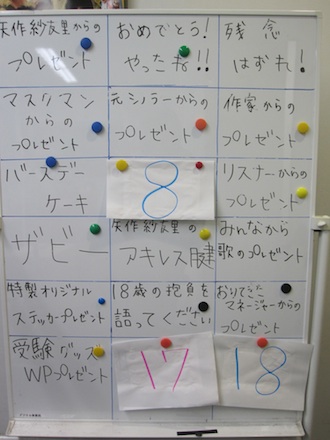 矢作紗友里からの
プレゼント
おめでとう!
やったね!!
残念
はずれ!
マスクマン
からの
プレゼント
元シノラーからの
プレゼント
作家からの
プレゼント
バースデー
ケーキ
8
リスナーからの
プレゼント
ザビー
矢作紗友里の
アキレス腱
みんなから
歌のプレゼント
特製オリジナル
ステッカープレゼント
18歳の抱負を
語ってください
おりてきた
マネージャーからの
プレゼント
受験グッズ
WPプレゼント
ツ
18